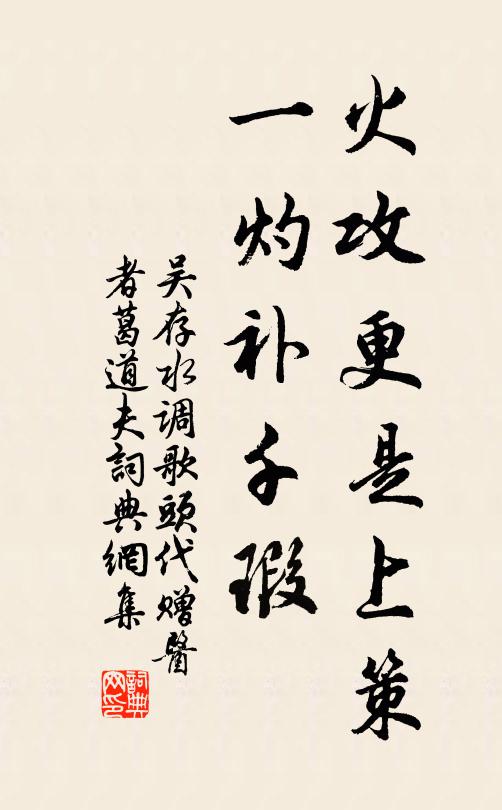 火攻更是上策
一灼补千瑕
吴存水调歌頭代赠醫
者葛道夫詞典網集
詞典網印